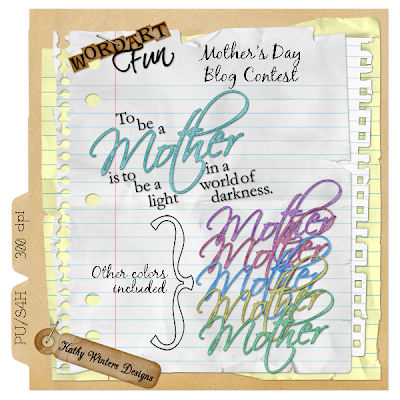 WORDART
Fun
Mother's Day
Blog Contest
To be a
Mother
is to be a light in a world of darkness.
Other colors
included
Mother
Mother
Mother
Mother
Mother
300 dpi
PU/S4H
Kathy Winters Designs